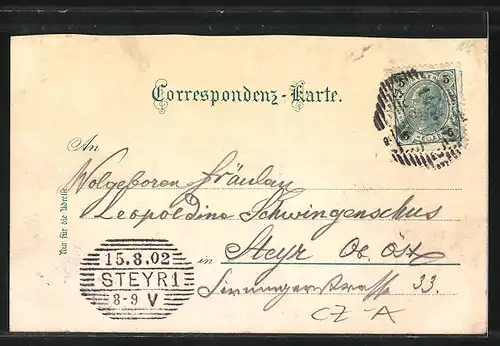 Correspondenz-Karte.
An
Wolgeboren Fräulau
Leopoldine Schwingenschus
in Steyr Ob. Öst
Sirningerstrasse 33.
CZ-A
Nur für die Adresse
15.8.02
STEYR 1
8-9 V
5 5
5 5